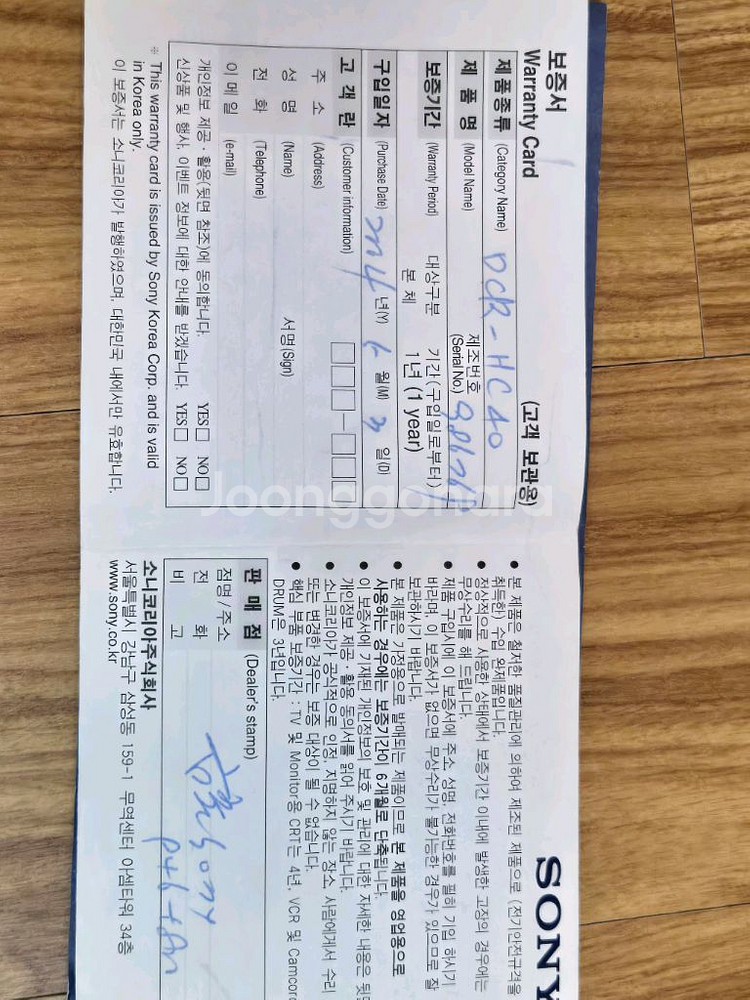 보증서
Warranty Card
(고객 보관용)
제품종류 (Category Name) DCR-HC40
제 품 명 (Model Name) 제조번호 (Serial No.)
보증기간 (Warranty Period) 대상구분 기간(구입일로부터)
본 체 1년 (1 year)
구입일자 (Purchase Date) 년(Y) 월(M) 일(D)
고 객 란 (Customer information)
주 소 (Address)
성 명 (Name) 서명(Sign)
전 화 (Telephone)
이 메 일 (e-mail)
개인정보 제공·활용(뒷면 참조)에 동의합니다. YES □ NO □
신상품 및 행사, 이벤트 정보에 대한 안내를 받겠습니다. YES □ NO □
※ This warranty card is issued by Sony Korea Corp. and is valid
in Korea only.
이 보증서는 소니코리아가 발행하였으며, 대한민국 내에서만 유효합니다.
SONY
● 본 제품은 철저한 품질관리에 의하여 제조된 제품으로 (전기안전규격을
취득한) 수입 완제품입니다.
● 정상적으로 사용한 상태에서 보증기간 이내에 발생한 고장의 경우에는
무상수리를 해 드립니다.
● 제품 구입시에 이 보증서에 주소, 성명, 전화번호를 필히 기입 하시기
바라며, 이 보증서가 없으면 무상수리가 불가능한 경우가 있으므로 잘
보관하시기 바랍니다.
● 본 제품은 가정용으로 판매되는 제품이므로 본 제품을 영업용으로
사용하는 경우에는 보증기간이 6개월로 단축됩니다.
● 이 보증서에 기재된 개인정보의 보호 및 관리에 대한 자세한 내용은 뒷면
개인정보 제공·활용 동의서를 읽어 주시기 바랍니다.
● 소니코리아가 공식적으로 인정, 지명하지 않는 장소, 사람에게서 수리
또는 변경한 경우는 보증 대상이 될 수 없습니다.
● 핵심 부품 보증기간 : TV 및 Monitor용 CRT는 4년, VCR 및 Camcord
DRUM은 3년입니다.
판 매 점 (Dealer's stamp)
점명/주소
전 화
비 고
소니코리아주식회사
서울특별시 강남구 삼성동 159-1 무역센타 아셈타워 34층
www.sony.co.kr
Joonggonara